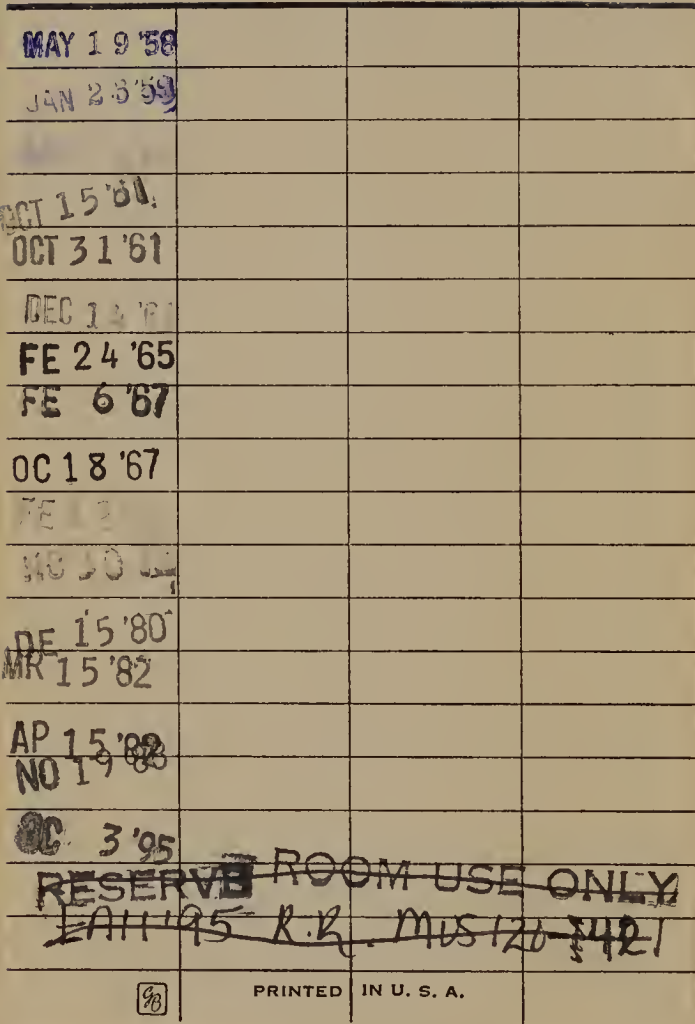 MAY 19 '58
JAN 23 '59
OCT 15
OCT 31 '61
DEC 14
FE 24 '65
FE 6 '67
OC 18 '67
FE
30
DE 15 '80
MR 15 '82
AP 15 '82
NO 19 '88
OC 3 '95
RESERVE ROOM USE ONLY
'95 R.R. MUS 120
GB
PRINTED IN U. S. A.